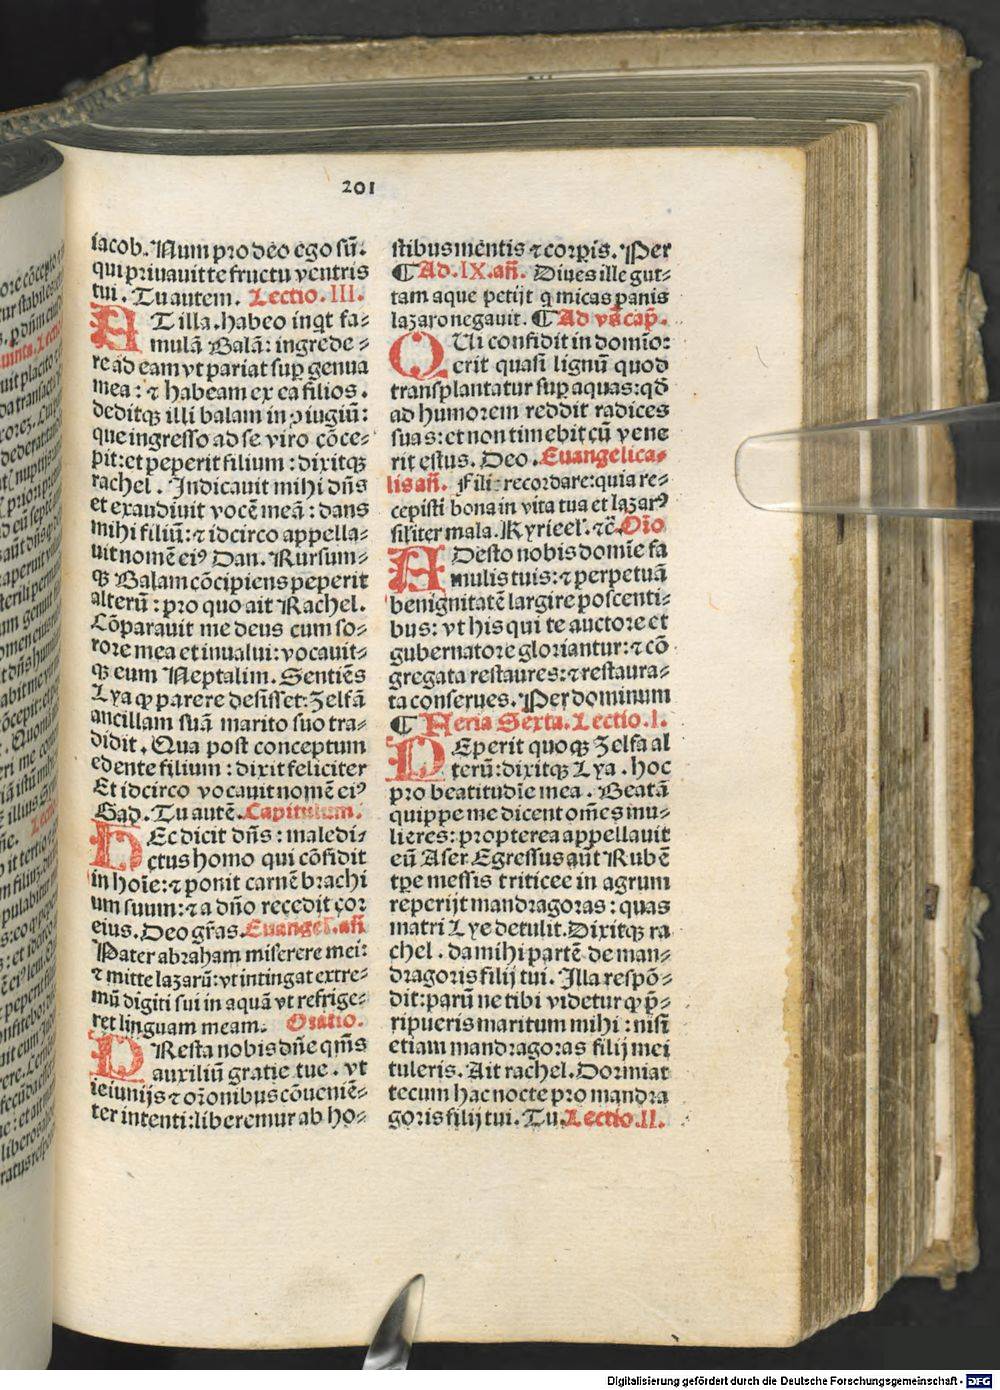 201
iacob. Num pro deo ego sū.
qui priuauit te fructu ventris
tui. Tu autem. Lectio. III.
AT illa. habeo inqt fa⸗
mulā Balā: ingrede⸗
re ad eam vt pariat sup genua
mea: ⁊ habeam ex ea filios.
deditqꝫ illi balam in ꝯiugiū:
que ingresso ad se viro cōce⸗
pit: et peperit filium: dixitqꝫ
rachel. Iudicauit mihi dn̄s
et exaudiuit vocē meā: dans
mihi filiū: ⁊ idcirco appella⸗
uit nomē eiꝰ Dan. Rursum⸗
qꝫ Balam cōcipiens peperit
alterū: pro quo ait Rachel.
Cōparauit me deus cum so⸗
rore mea et inualui: vocauit⸗
qꝫ eum Neptalim. Sentiēs
Lya ꝙ parere desisset: Zelfā
ancillam suā marito suo tra⸗
didit. Qua post conceptum
edente filium: dixit feliciter
Et idcirco vocauit nomē eiꝰ
Gad. Tu autē. Capitulum.
HEc dicit dn̄s: maledi⸗
ctus homo qui cōfidit
in hoīe: ⁊ ponit carnē brachi
um suum: ⁊ a dn̄o recedit cor
eius. Deo gr̄as. Euangel. an̄
Pater abraham miserere mei:
⁊ mitte lazarū: vt intingat extre⸗
mū digiti sui in aquā vt refrige⸗
ret linguam meam. Oratio.
PResta nobis dn̄e qm̄s
auxiliū gratie tue. vt
ieiunijs ⁊ or̄onibus cōueniē⸗
ter intenti: liberemur ab ho⸗
stibus mentis ⁊ corpis. Per
¶ Ad. IX. an̄. Diues ille gut⸗
tam aque petijt q micas panis
lazaro negauit. ¶ Ad vs̄ cap̄.
QUi confidit in domīo:
erit quasi lignū quod
transplantatur sup aquas: qd̄
ad humorem reddit radices
suas: et non timebit cū vene
rit estus. Deo. Euangelica⸗
lis an̄. Fili: recordare: quia re⸗
cepisti bona in vita tua et lazarꝰ
siliter mala. Kyrieel. ⁊c̄. Or̄o
ADesto nobis domīe fa
mulis tuis: ⁊ perpetuā
benignitatē largire poscenti⸗
bus: vt his qui te auctore et
gubernatore gloriantur: ⁊ cō
gregata restaures: ⁊ restaura⸗
ta conserues. Per dominum
¶ Feria Sexta. Lectio. I.
PEperit quoqꝫ Zelfa al
terū: dixitqꝫ Lya. hoc
pro beatitudīe mea. Beatā
quippe me dicent om̄es mu⸗
lieres: propterea appellauit
eū Aser. Egressus aūt Rubē
tp̄e messis triticee in agrum
reperijt mandragoras: quas
matri Lye detulit. Dixitqꝫ ra
chel. da mihi partē de man⸗
dragoris filij tui. Illa respō⸗
dit: parū ne tibi videtur ꝙ p̄⸗
ripueris maritum mihi: nisi
etiam mandragoras filij mei
tuleris. Ait rachel. Dormiat
tecum hac nocte pro mandra
goris filij tui. Tu. Lectio. II.
Digitalisierung gefördert durch die Deutsche Forschungsgemeinschaft - DFG